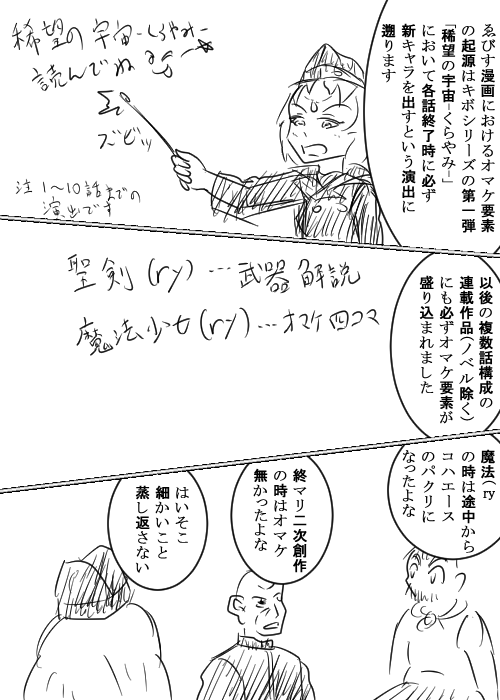 ゑびす漫画におけるオマケ要素
の起源はキボシリーズの第一弾
「稀望の宇宙-くらやみ-」
において各話終了時に必ず
新キャラを出すという演出に
遡ります
稀望の宇宙-くらやみ-
読んでね
ズビッ
注 1〜10話までの
演出です
以後の複数話構成の
連載作品(ノベル除く)
にも必ずオマケ要素が
盛り込まれました
聖剣(ry)…武器解説
魔法少女(ry)…オマケ四コマ
魔法(ry
の時は途中から
コハエース
のパクリに
なったよな
終マリ二次創作
の時はオマケ
無かったよな
はいそこ
細かいこと
蒸し返さない